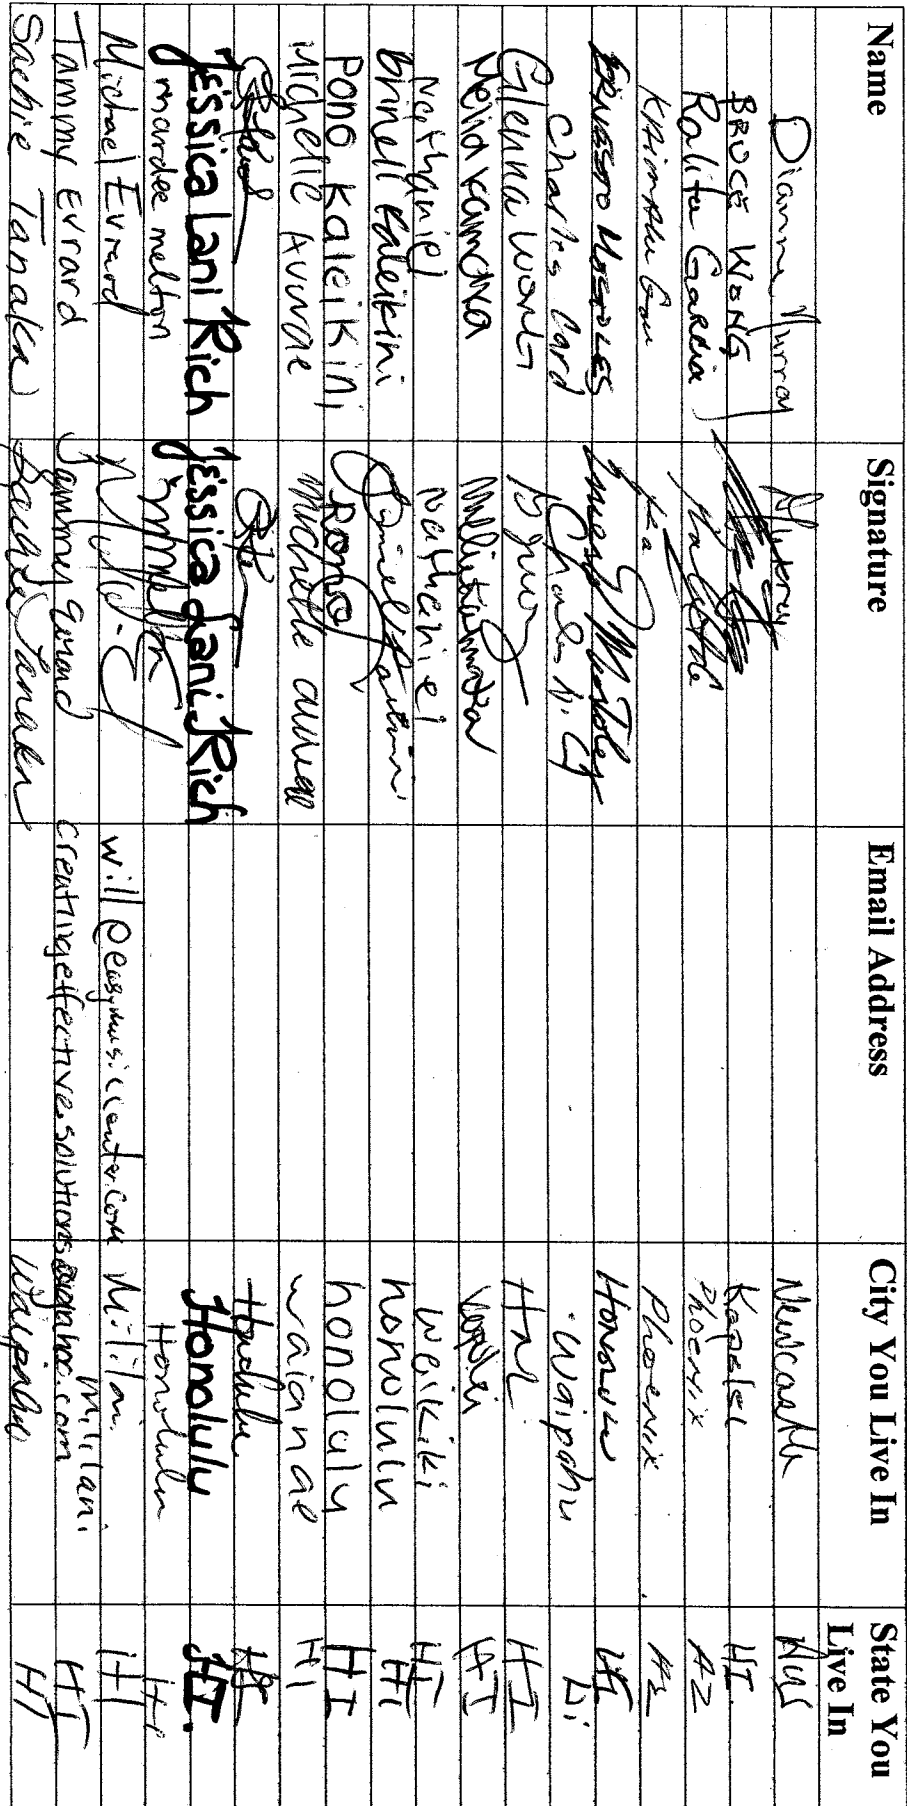 Name Signature Email Address City You Live In State You Live In
Dianne Murray Newcastle NSW
BRUCE WONG Kapolei HI.
Ralita Garcia Phoenix AZ
Phoenix AZ
Honolulu HI
Charles Card Charles Waipahu Hi
Glenna Wong HNL HI
Melia Kamaka HI
Nathaniel Nathaniel Waikiki HI
Brinell Kaleikini honolulu HI
Pono Kaleikini Pono honolulu HI
Michelle Auwae michelle auwae waianae HI
Honolulu HI
Jessica Lani Rich Jessica Lani Rich Honolulu HI.
mardee melton Honolulu HI
Michael Evrard will@easymusiccenter.com Mililani HI
Tammy Evrard Tammy Evrard creatingeffective.solutions@yahoo.com Mililani HI
Sachie Tanaka Sachie Tanaka Waipahu HI